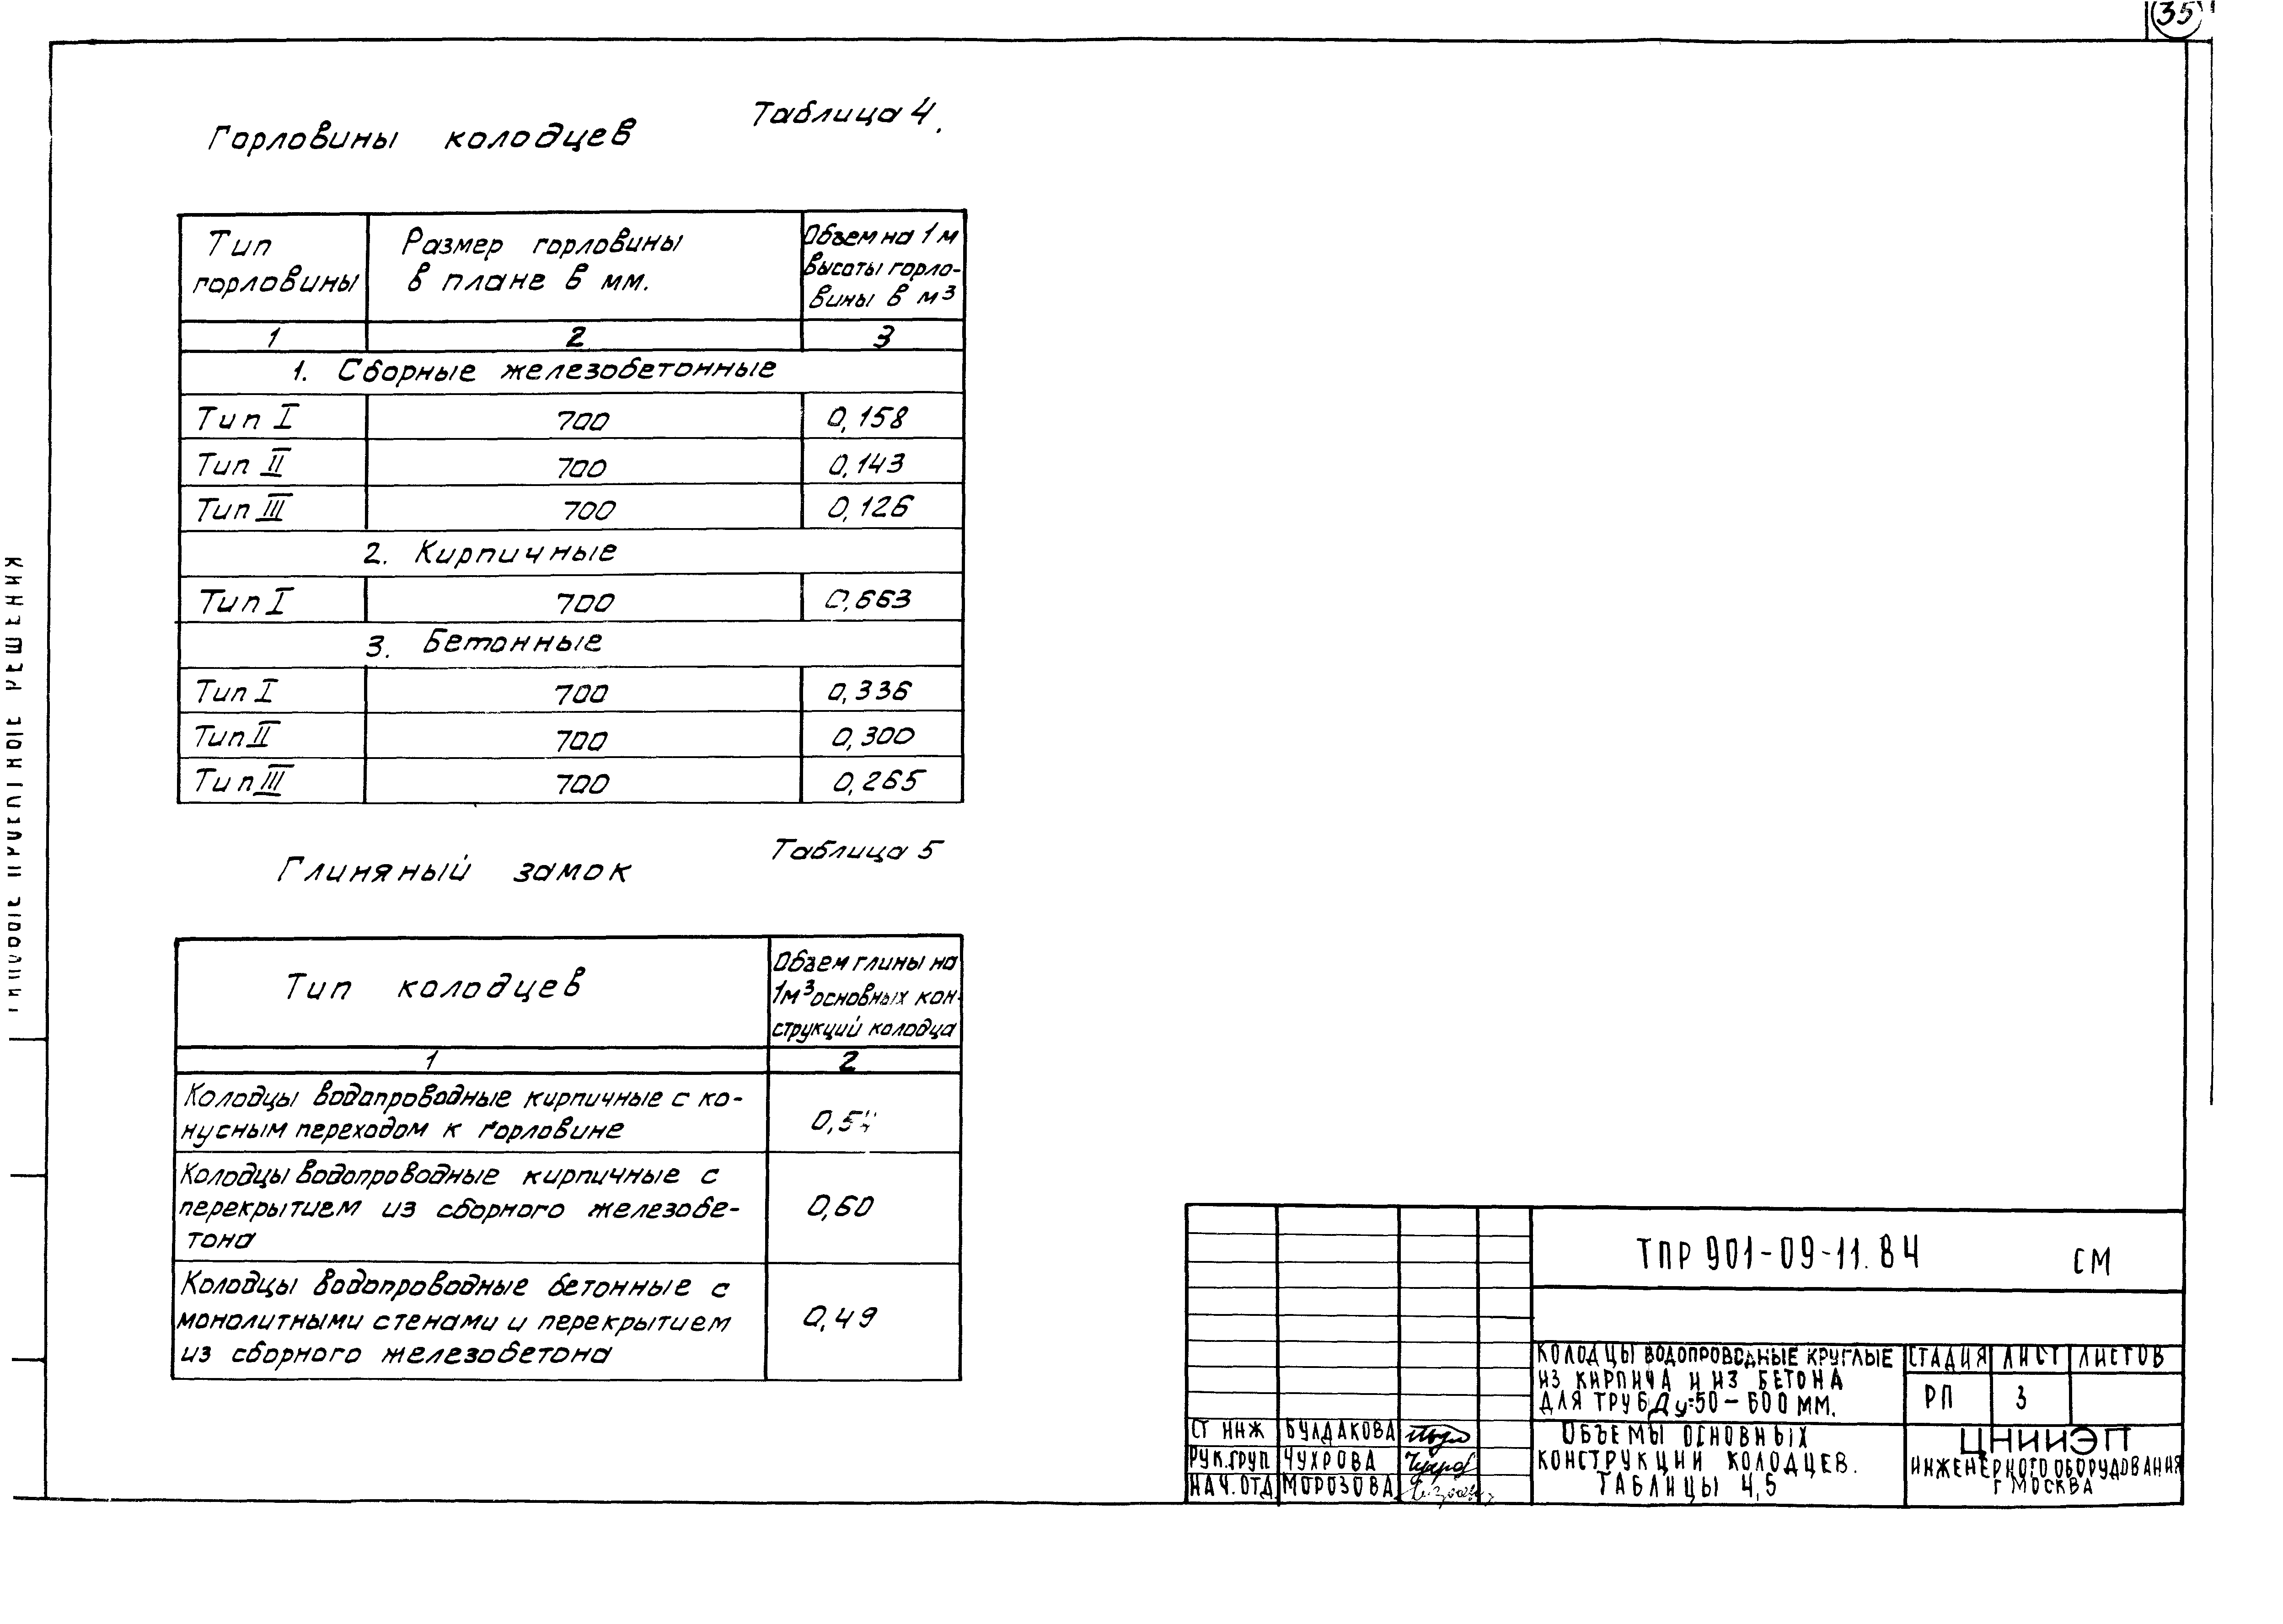 35
Таблица 4.
Горловины колодцев
Тип горловины
Размер горловины в плане в мм.
Объем на 1 м высоты горло-
вины в м³
1 2 3
1. Сборные железобетонные
Тип I 700 0,158
Тип II 700 0,143
Тип III 700 0,126
2. Кирпичные
Тип I 700 0,663
3. Бетонные
Тип I 700 0,336
Тип II 700 0,300
Тип III 700 0,265
Таблица 5
Глиняный замок
Тип колодцев
Объем глины на
1м³ основных кон-
струкций колодца
1 2
Колодцы водопроводные кирпичные с ко-
нусным переходом к горловине
Колодцы водопроводные кирпичные с
перекрытием из сборного железобе-
тона
0,60
Колодцы водопроводные бетонные с
монолитными стенами и перекрытием
из сборного железобетона
0,49
ТПР 901-09-11.84 СМ
КОЛОДЦЫ ВОДОПРОВОДНЫЕ КРУГЛЫЕ
ИЗ КИРПИЧА И ИЗ БЕТОНА
ДЛЯ ТРУБ Ду=50-600 ММ.
СТАДИЯ ЛИСТ ЛИСТОВ
РП 3
СТ ИНЖ БУЛДАКОВА
РУК.ГРУП ЧУХРОВА
НАЧ.ОТД МОРОЗОВА
ОБЪЕМЫ ОСНОВНЫХ
КОНСТРУКЦИИ КОЛОДЦЕВ.
ТАБЛИЦЫ 4,5
ЦНИИЭП
ИНЖЕНЕРНОГО ОБОРУДОВАНИЯ
Г МОСКВА